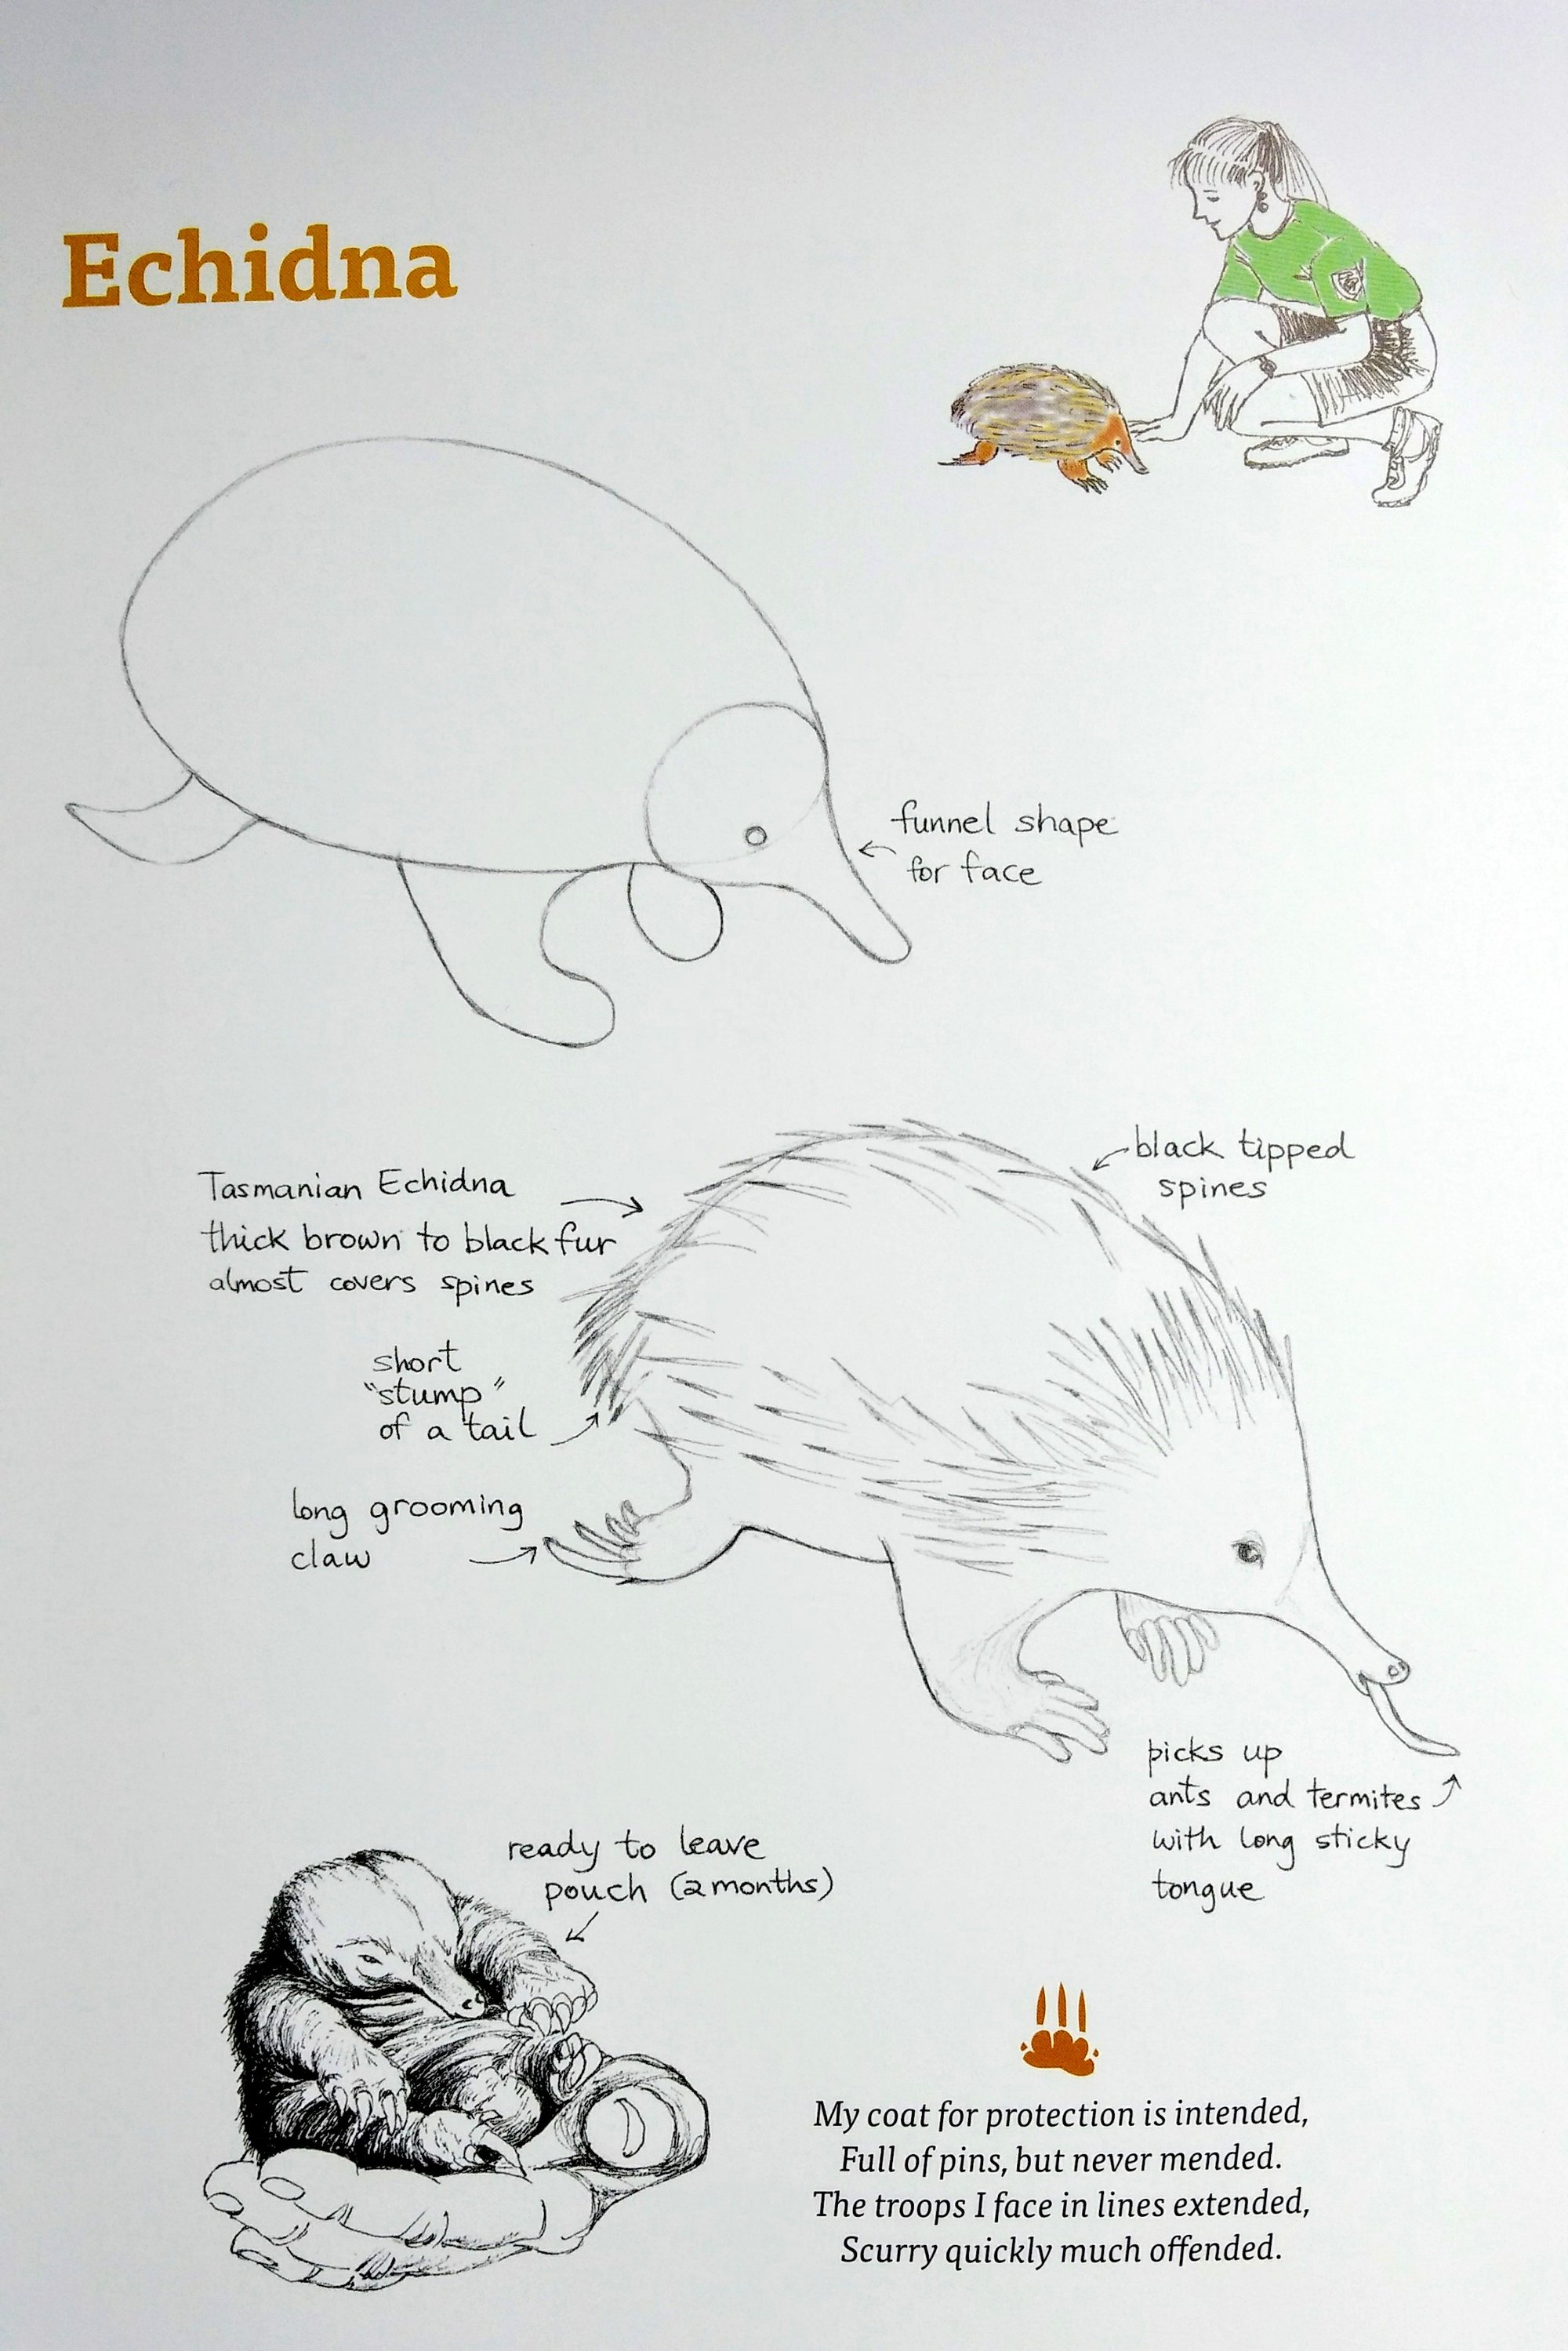 Echidna
funnel shape
for face
black tipped
spines
Tasmanian Echidna
thick brown to black fur
almost covers spines
short
"stump"
of a tail
long grooming
claw
picks up
ants and termites
with long sticky
tongue
ready to leave
pouch (2 months)
My coat for protection is intended,
Full of pins, but never mended.
The troops I face in lines extended,
Scurry quickly much offended.